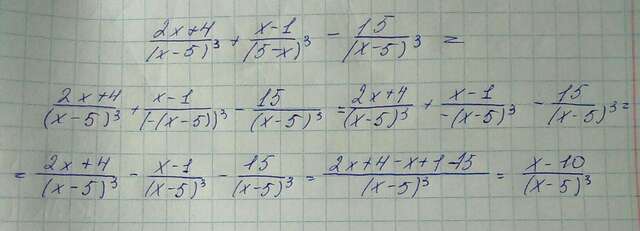 (2x+4)/(x-5)³ + (x-1)/(5-x)³ - 15/(x-5)³ =
(2x+4)/(x-5)³ + (x-1)/(-(x-5))³ - 15/(x-5)³ = (2x+4)/(x-5)³ + (x-1)/-(x-5)³ - 15/(x-5)³ =
= (2x+4)/(x-5)³ - (x-1)/(x-5)³ - 15/(x-5)³ = (2x+4-x+1-15)/(x-5)³ = (x-10)/(x-5)³